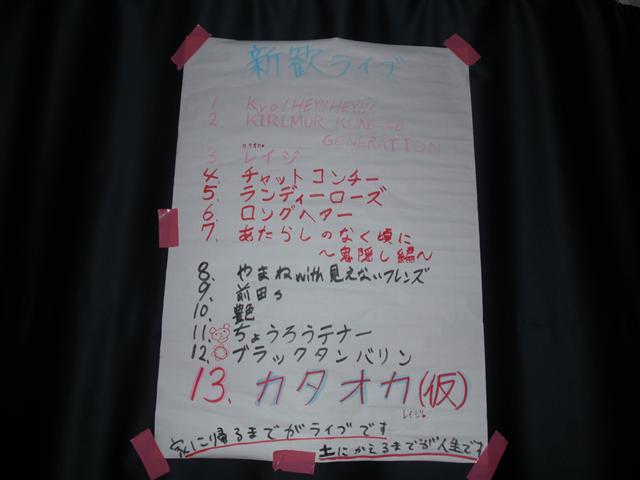 新歓ライブ
1 Kyo!HEY!!HEY!!!
2 KIRIMUR KUNG-FU
GENERATION
カタオカ♥
3 レイジ
4. チャットコンチー
5. ランディーローズ
6. ロングヘアー
7. あたらしのなく頃に
〜鬼隠し編〜
8. やまねwith見えないフレンズ
9. 前田s
10. 艶
11. ちょうろうテナー
12. ブラックタンバリン
13. カタオカ(仮)
レイジ♥
家に帰るまでがライブです
土にかえるまでが人生です